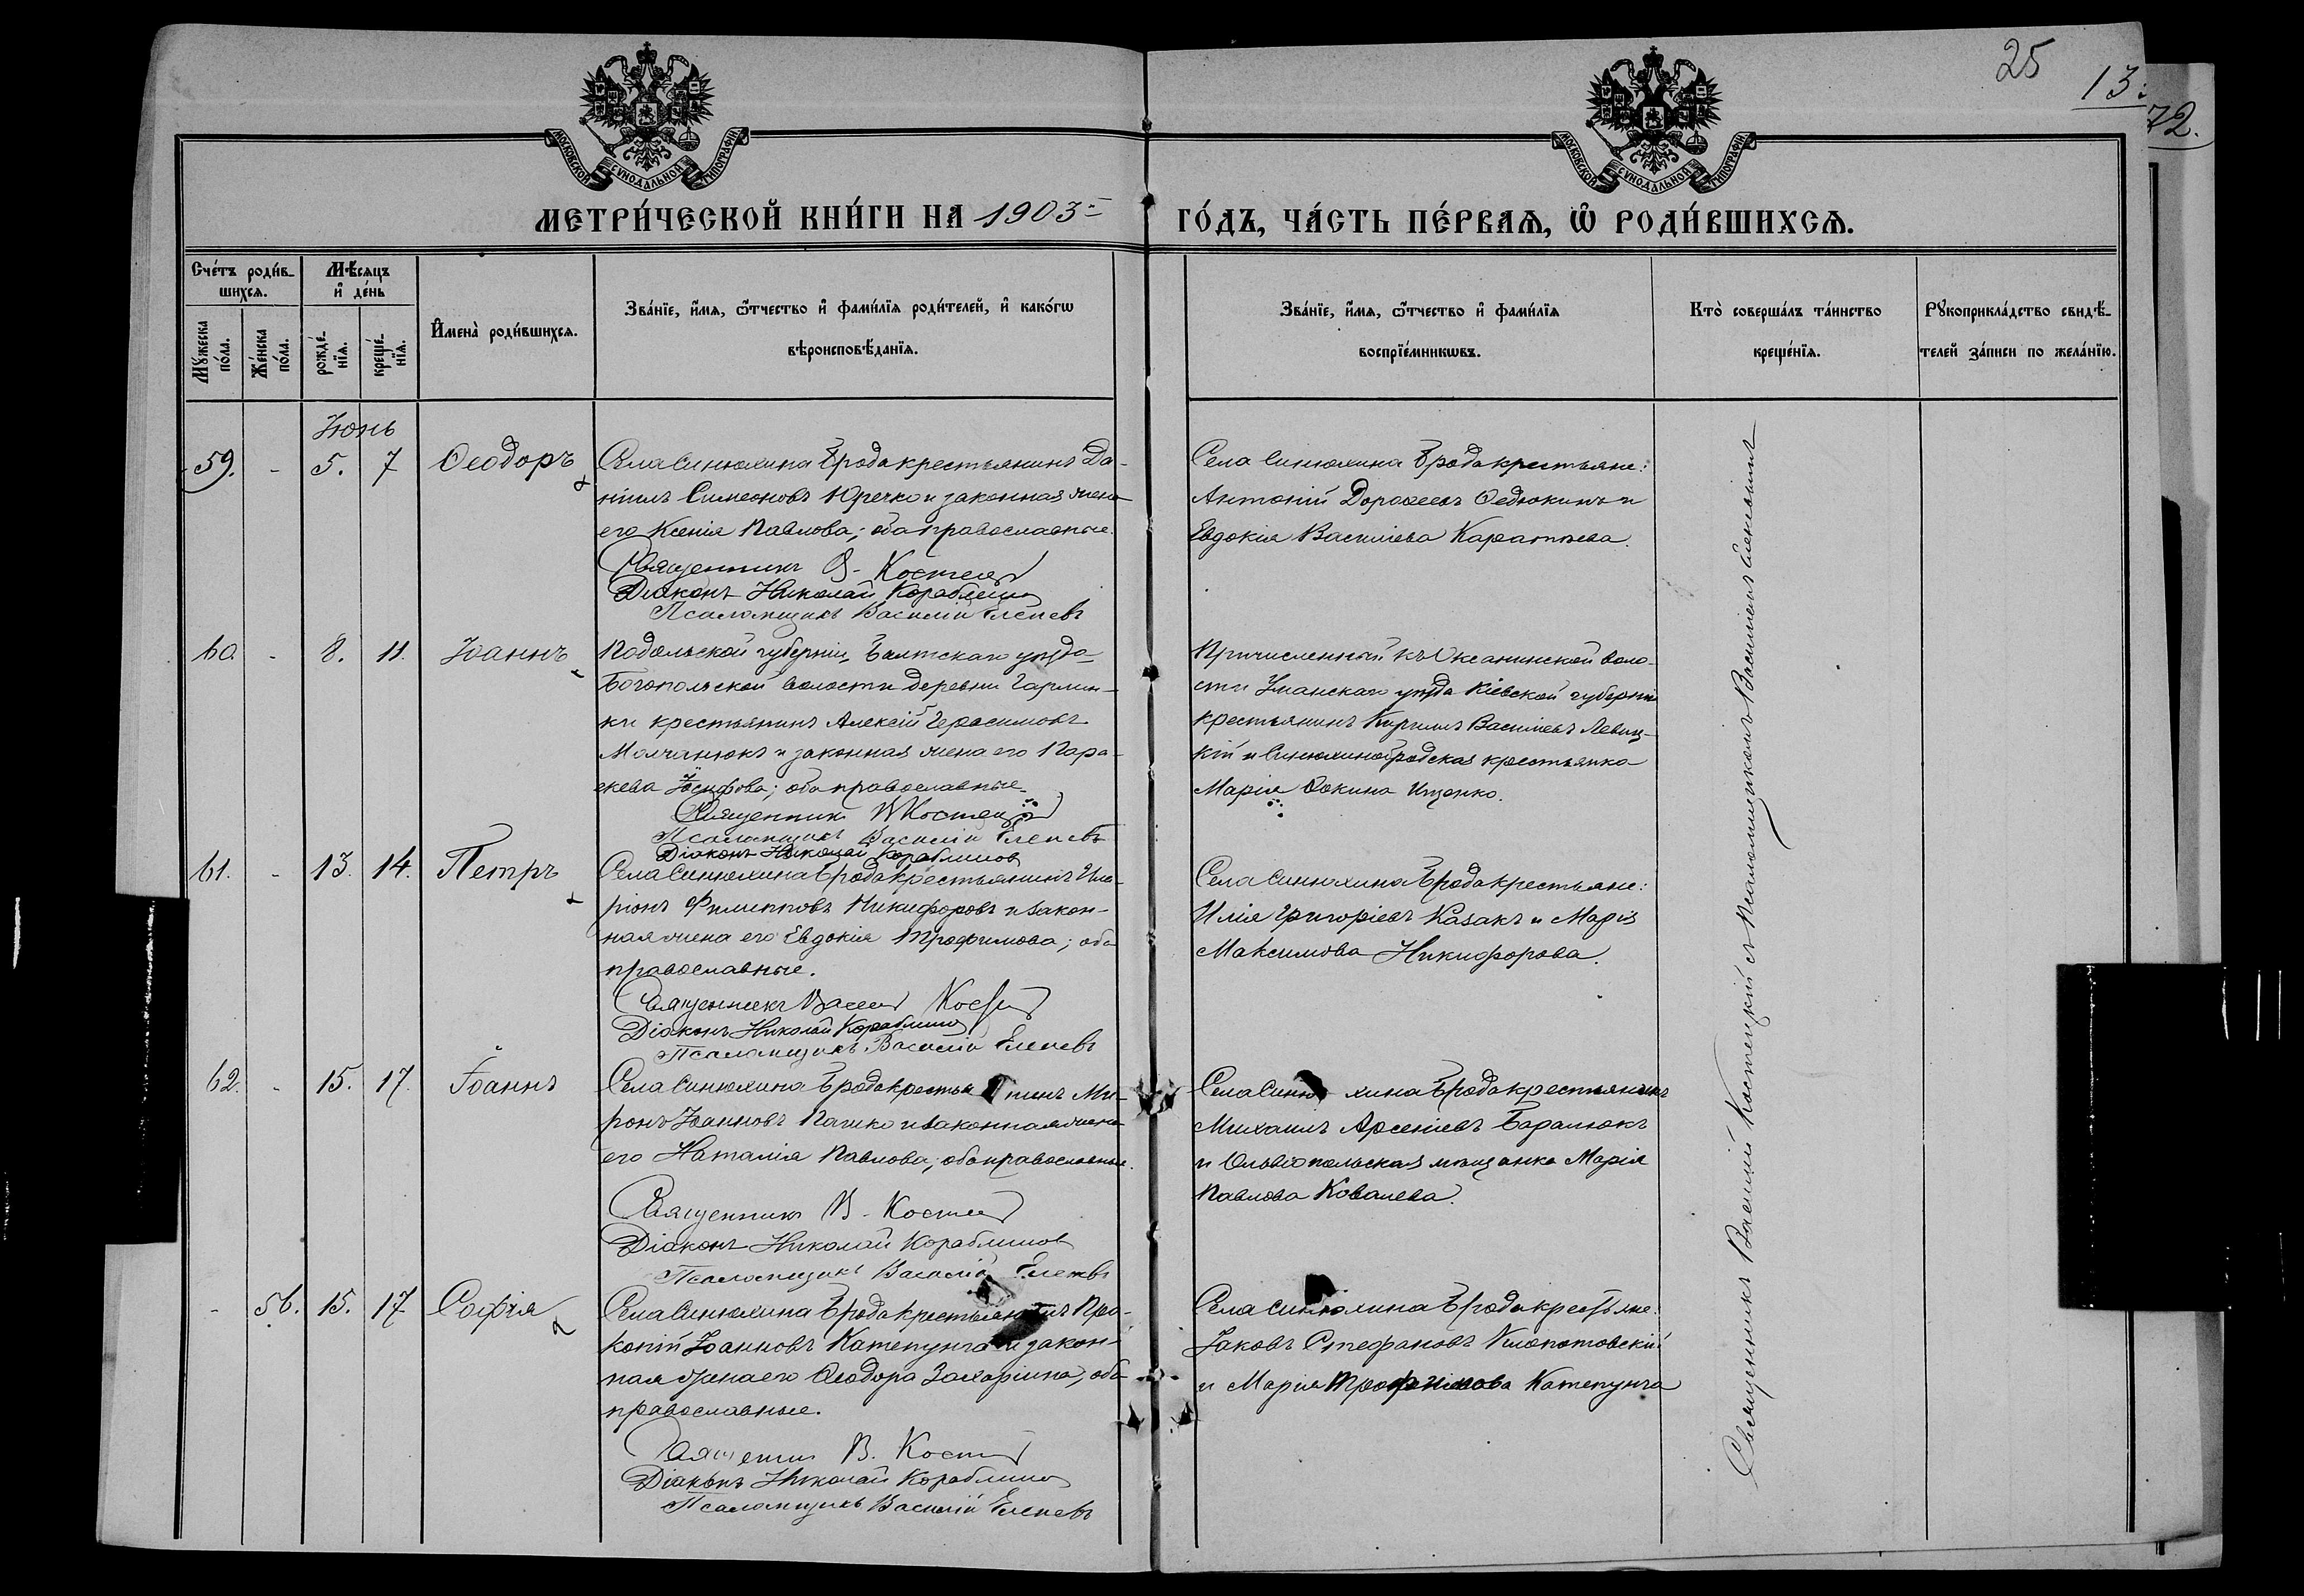 25
13.
72.
МОСКОВСКОЙ СѴНОДАЛЬНОЙ ТИПОГРАФІИ
МОСКОВСКОЙ СѴНОДАЛЬНОЙ ТИПОГРАФІИ
МЕТРИ́ЧЕСКОЙ КНИ́ГИ НА 1903 ГО́ДЪ, ЧА́СТЬ ПЕ́РВАѦ, Ѡ҆ РОДИ́ВШИХСѦ.
Сче́тъ роди́в-
шихсѧ.
Мѣ́сѧцъ
и҆ де́нь
Мꙋ́жеска
по́ла.
Же́нска
по́ла.
рожде́-
нїѧ.
креще́-
нїѧ.
И҆мена̀ роди́вшихсѧ.
Зва́нїе, и҆́мѧ, ѻ҆́тчество и҆ фами́лїѧ роди́телей, и҆ како́гѡ
вѣроисповѣ́данїѧ.
Зва́нїе, и҆́мѧ, ѻ҆́тчество и҆ фами́лїѧ
воспрїе́мникѡвъ.
Кто̀ соверша́лъ та́инство
креще́нїѧ.
Рꙋкоприкла́дство свидѣ́-
телей за́писи по жела́нїю.
Іюнь
59. - 5. 7 Ѳеодоръ
Села Синюхина Брода крестьянинъ Да-
ніилъ Симеоновъ Юречко и законная жена
его Ксенія Павлова; оба православные.
Священникъ В. Костец
Діаконъ Николай Кораблинов
Псаломщикъ Василій Еленевъ
Села Синюхина Брода крестьяне:
Антоній Дороѳеевъ Ѳедюкинъ и
Евдокія Василіева
60. - 8. 11. Іоаннъ
Подольской губерніи, Балтскаго уѣзда
Богопольской волости деревни
крестьянинъ Алексій Герасимовъ
Молчанюкъ и законная жена его Пара-
скева Іосифова; оба православные.
Священникъ В Костец
Псаломщикъ Василій Еленевъ
Діаконъ Николай Кораблинов
Причисленный къ Оксанинской воло-
сти Уманскаго уѣзда Кіевской губерніи
крестьянинъ Кириллъ Василіевъ Левиц-
кій и Синюхинобродская крестьянка
Марія Ѳокина Ищенко.
61. - 13. 14. Петръ
Села Синюхина Брода крестьянинъ Ила-
ріонъ Филипповъ Никифоровъ и закон-
ная жена его Евдокія Трофимова; оба
православные.
Священникъ Васил Кост
Діаконъ Николай Кораблинов
Псаломщикъ Василій Еленевъ
Села Синюхина Брода крестьяне:
Илія Григоріевъ Казакъ и Марія
Максимова Никифорова.
62. - 15. 17. Іоаннъ
Села Синюхина Брода крестьянинъ Ми-
ронъ Іоанновъ Пашко и законная жена
его Наталія Павлова; оба православные.
Священникъ В. Костец
Діаконъ Николай Кораблинов
Псаломщикъ Василій Еленевъ
Села Синюхина Брода крестьянинъ
Михаилъ Арсеніевъ Баранюкъ
и Ольвіопольская мѣщанка Марія
Павлова Ковалева.
- 56. 15. 17 Софія
Села Синюхина Брода крестьянинъ Про-
копій Іоанновъ Катепунга и закон-
ная жена его Ѳеодора Захаріина; оба
православные.
Священник В. Кост
Діаконъ Николай Кораблинов
Псаломщикъ Василій Еленевъ
Села Синюхина Брода крестьяне:
Іаковъ Стефановъ Клопотовскій
и Марія Трофимова Катепунга
Священникъ Василій Костецкій съ псаломщикомъ Василіемъ Еленевымъ